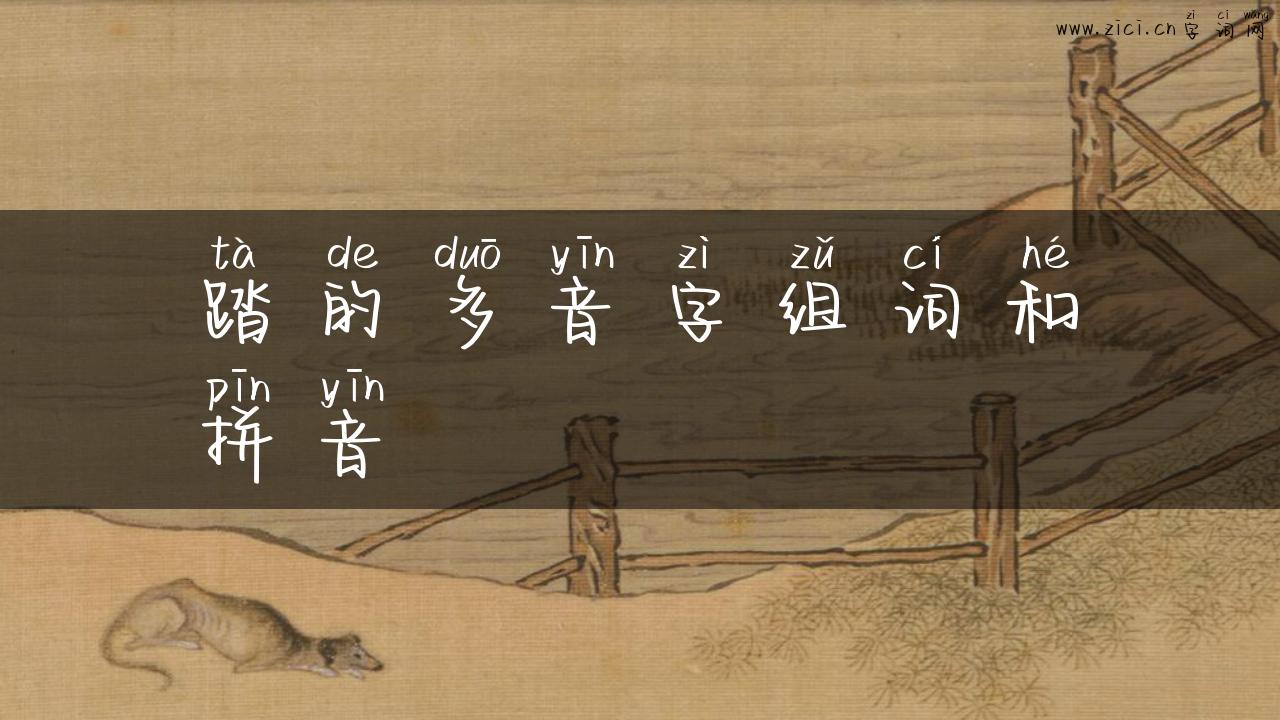 zì cí wang
www.zici.cn 字词网
tà de duō yīn zì zǔ cí hé
踏的多音字组词和
pīn yīn
拼音